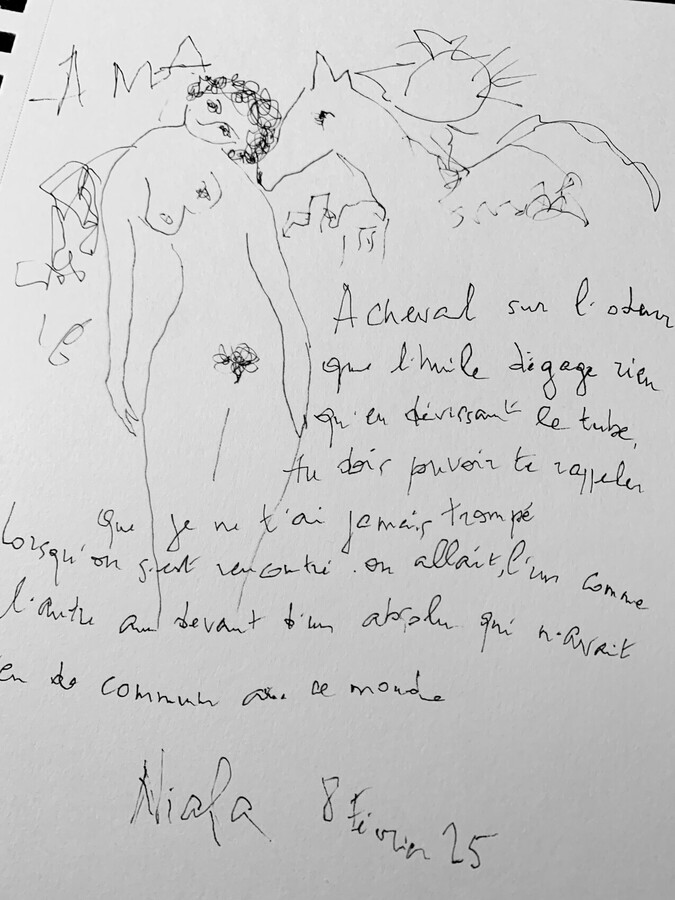 AMA
A cheval sur l'odeur
que l'huile dégage rien
qu'en dévissant le tube,
tu dois pouvoir te rappeler
que je ne t'ai jamais trompé
Lorsqu'on s'est rencontré on allait, l'un comme
l'autre au devant d'un absolu qui n'avait
en de commun avec ce monde
Niala 8 Février 25